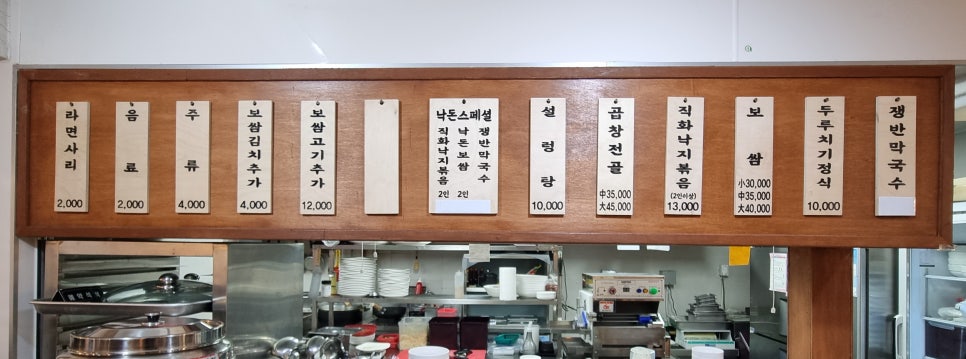 라면사리
2,000
음료
2,000
주류
4,000
보쌈김치추가
4,000
보쌈고기추가
12,000
낙돈스페셜
직화낙지볶음
2인
낙돈보쌈
2인
쟁반막국수
설렁탕
10,000
곱창전골
中35,000
大45,000
직화낙지볶음
(2인이상)
13,000
보쌈
小30,000
中35,000
大40,000
두루치기정식
10,000
쟁반막국수